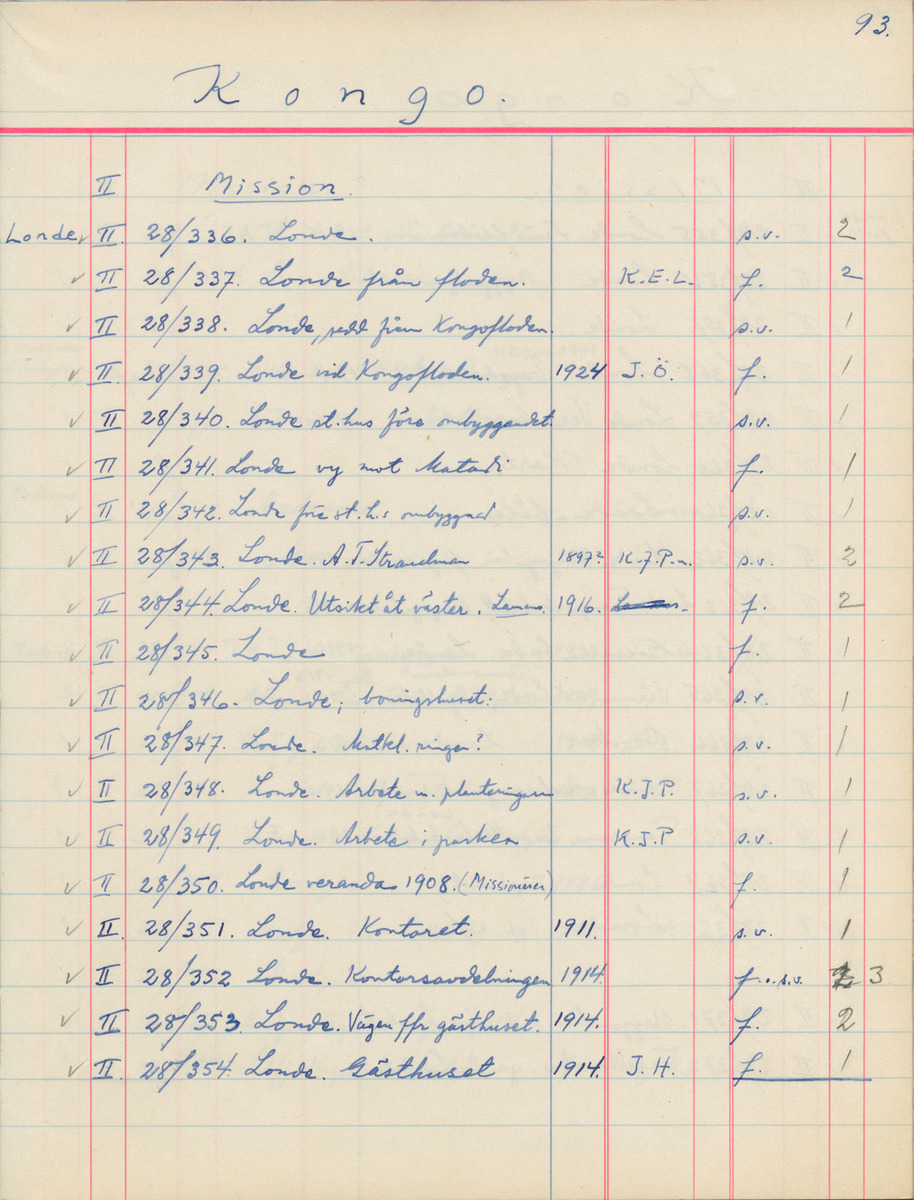 93.
Kongo.
II Mission.
Londe II 28/336. Londe. s.v. 2
II 28/337. Londe från floden. K.E.L. f. 2
II 28/338. Londe, sedd från Kongofloden. s.v. 1
II 28/339. Londe vid Kongofloden. 1924 J.Ö. f. 1
II 28/340. Londe st.hus före ombyggandet. s.v. 1
II 28/341. Londe vy mot Matadi f. 1
II 28/342. Londe före st.h.s ombyggnad s.v. 1
II 28/343. Londe. A.T. Strandman 1897? K.J.P.n. s.v. 2
II 28/344 Londe. Utsikt åt väster. Laman. 1916. f. 2
II 28/345. Londe f. 1
II 28/346. Londe; boningshuset. s.v. 1
II 28/347. Londe. Matkl. ringer? s.v. 1
II 28/348. Londe. Arbete m. planteringen K.J.P. s.v. 1
II 28/349. Londe. Arbete i parken K.J.P s.v. 1
II 28/350. Londe veranda 1908. (Missionärer) f. 1
II. 28/351. Londe. Kontoret. 1911. s.v. 1
II 28/352 Londe. Kontorsavdelningen 1914. f. o. s.v. 3
II 28/353 Londe. Vägen ffr gästhuset. 1914. f. 2
II. 28/354. Londe. Gästhuset 1914. J.H. f. 1